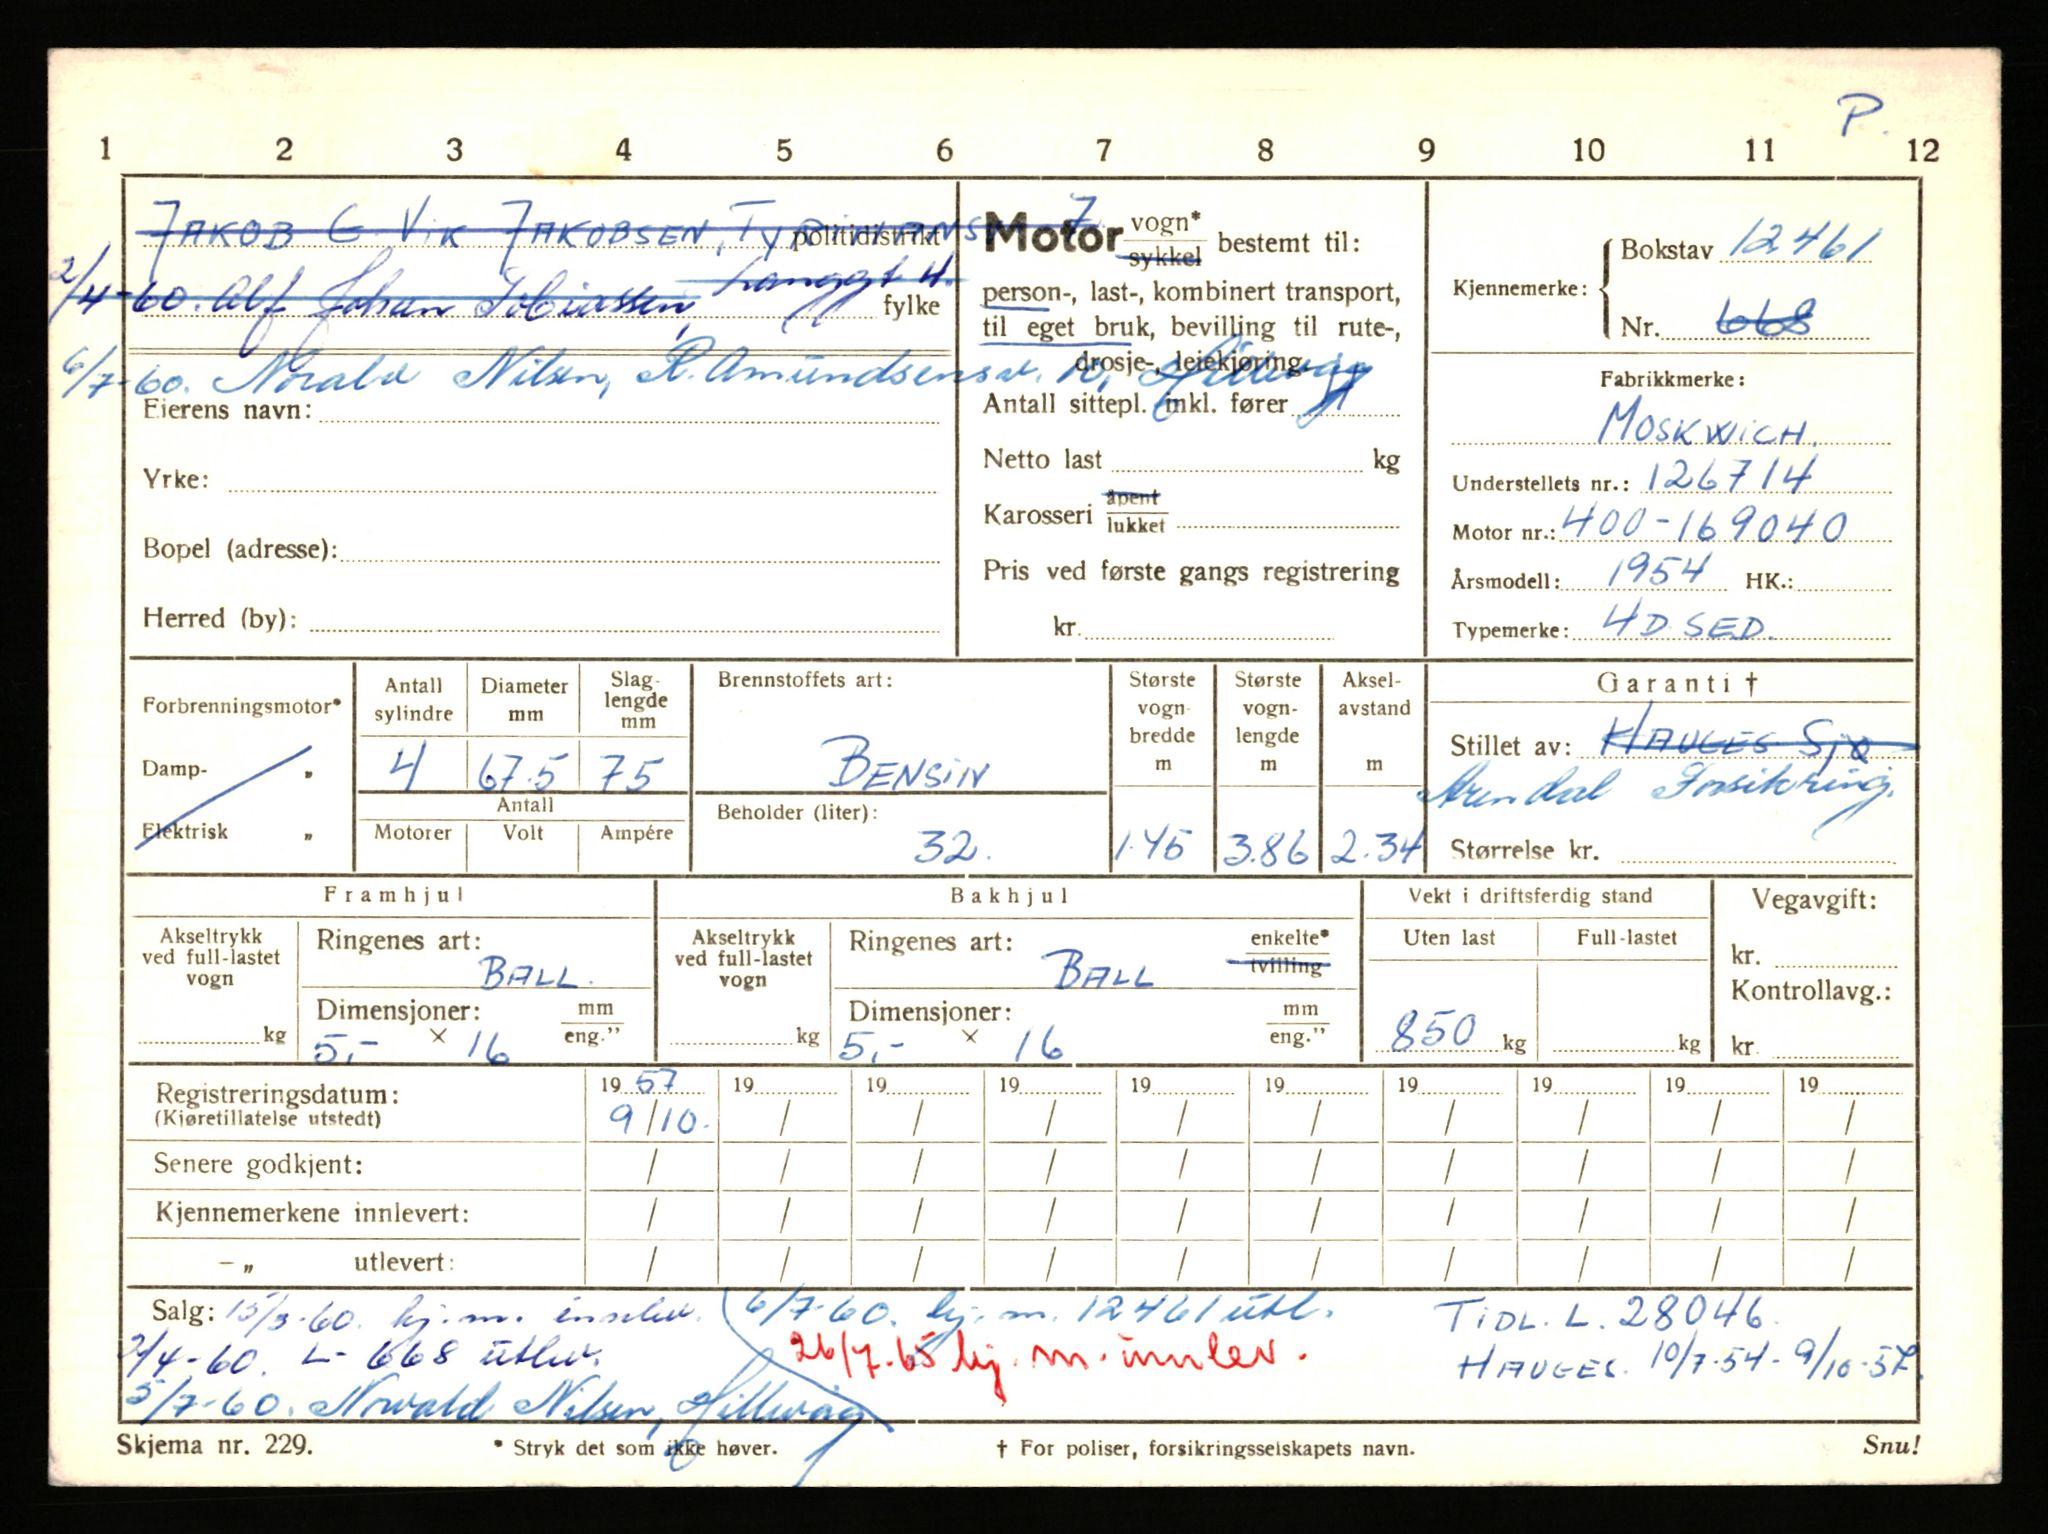 P.
1 2 3 4 5 6 7 8 9 10 11 12
JAKOB G. VIK JAKOBSEN, politidistrikt 7
2/4-60. Alf Johan Tobiassen, Langgt 4. fylke
6/7-60. Norald Nilsen, R. Amundsensv. 10, Hillevåg
Eierens navn:
Yrke:
Bopel (adresse):
Herred (by):
Motor vogn* / sykkel bestemt til:
person-, last-, kombinert transport,
til eget bruk, bevilling til rute-,
drosje-, leiekjøring
Antall sittepl. inkl. fører 4
Netto last kg
Karosseri åpent / lukket
Pris ved første gangs registrering
kr.
Kjennemerke: Bokstav 12461
Nr. 668
Fabrikkmerke:
MOSKWICH.
Understellets nr.: 126714
Motor nr.: 400-169040
Årsmodell: 1954 HK.:
Typemerke: 4D. SED.
Forbrenningsmotor*
Damp- „
Elektrisk „
Antall sylindre Diameter mm Slaglengde mm
4 67.5 75
Antall
Motorer Volt Ampére
Brennstoffets art:
BENSIN
Beholder (liter):
32.
Største vognbredde m
1.45
Største vognlengde m
3.86
Akselavstand m
2.34
Garanti †
Stillet av: HAUGES. SJØ
Arendal Forsikring.
Størrelse kr.
Framhjul
Akseltrykk ved full-lastet vogn
kg
Ringenes art:
BALL.
Dimensjoner: mm / eng."
5,- × 16
Bakhjul
Akseltrykk ved full-lastet vogn
kg
Ringenes art: enkelte* / tvilling
BALL
Dimensjoner: mm / eng."
5,- × 16
Vekt i driftsferdig stand
Uten last Full-lastet
850 kg kg
Vegavgift:
kr.
Kontrollavg.:
kr.
Registreringsdatum: 1957 19 19 19 19 19 19 19 19 19
(Kjøretillatelse utstedt) 9/10. / / / / / / / / /
Senere godkjent: / / / / / / / / / /
Kjennemerkene innlevert: / / / / / / / / / /
— „ utlevert: / / / / / / / / / /
Salg: 15/3-60. kj. m. innlev. 6/7-60. kj. m. 12461 utl. TIDL. L. 28046.
2/4-60. L- 668 utlev. 26/7.65 kj. m. innlev. HAUGES. 10/7-54 - 9/10-57.
5/7-60. Norvald Nilsen, Hillevåg
Skjema nr. 229. * Stryk det som ikke høver. † For poliser, forsikringsselskapets navn. Snu!